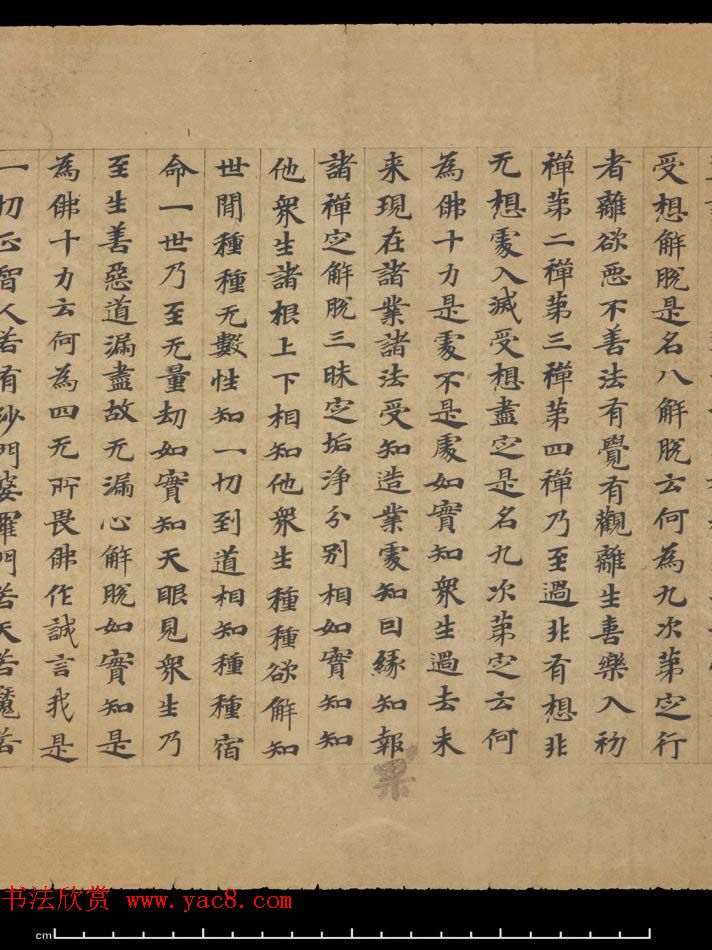 受想解脫是名八解脫云何為九次第定行
者離欲惡不善法有覺有觀離生喜樂入初
禪第二禪第三禪第四禪乃至過非有想非
无想處入滅受想盡定是名九次第定云何
為佛十力是處不是處如實知眾生過去未
来現在諸業諸法受知造業處知因緣知報
果
諸禪定解脫三昧定垢淨分別相如實知知
他眾生諸根上下相知他眾生種種欲解知
世間種種无數性知一切到道相知種種宿
命一世乃至无量劫如實知天眼見眾生乃
至生善惡道漏盡故无漏心解脫如實知是
為佛十力云何為四无所畏佛作誠言我是
一切正智人若有沙門婆羅門若天若魔若
书法欣赏 www.yac8.com
cm